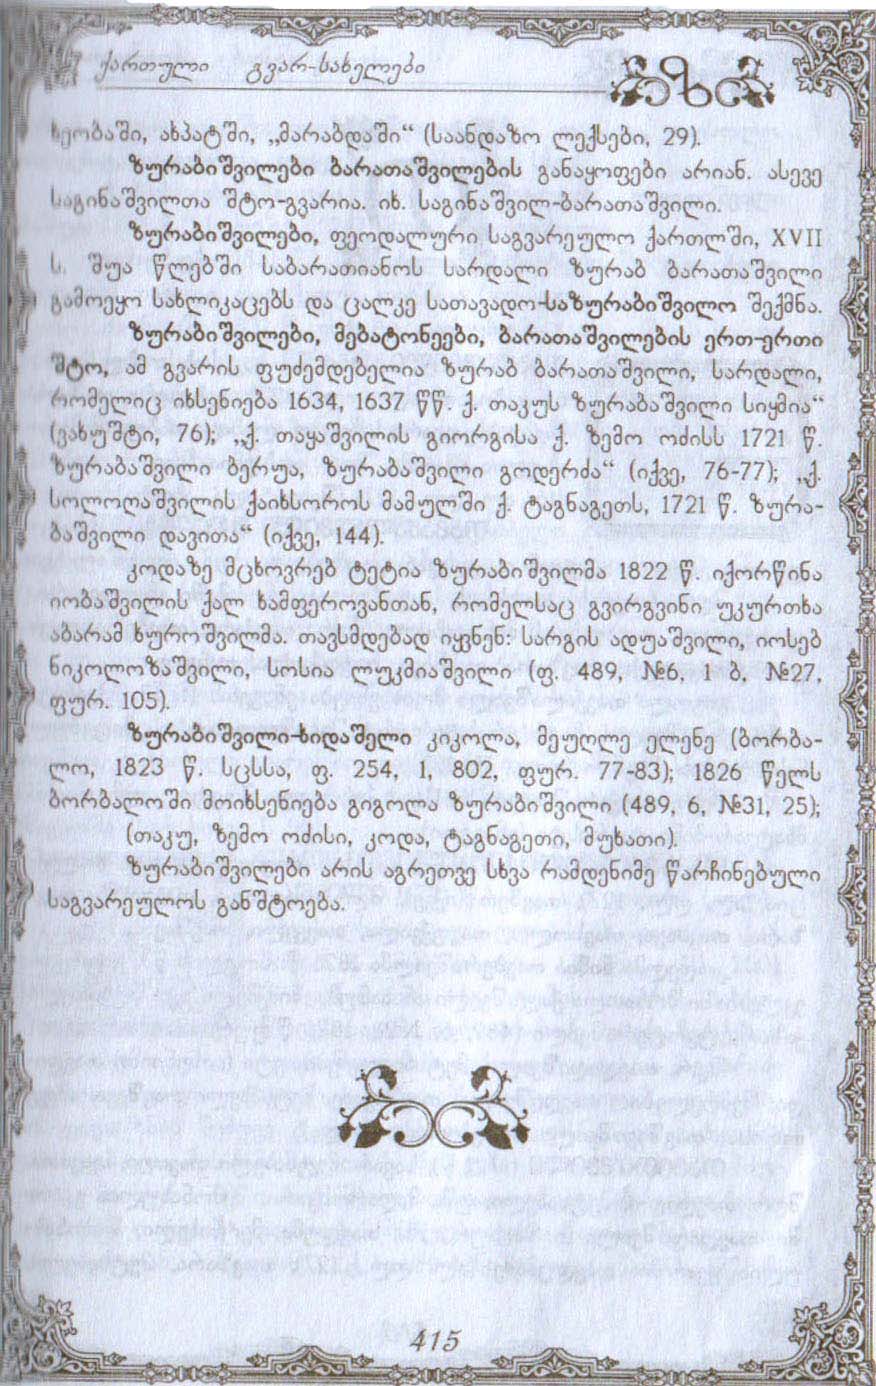 ქართული გვარ-სახელები
ხეობაში, ახპატში, „მარაბდაში“ (საანდაზო ლექსები, 29).
ზურაბიშვილები ბარათაშვილების განაყოფები არიან. ასევე
საგინაშვილთა შტო-გვარია. იხ. საგინაშვილ-ბარათაშვილი.
ზურაბიშვილები, ფეოდალური საგვარეულო ქართლში, XVII
ს. შუა წლებში საბარათიანოს სარდალი ზურაბ ბარათაშვილი
გამოეყო სახლიკაცებს და ცალკე სათავადო-საზურაბიშვილო შექმნა.
ზურაბიშვილები, მებატონეები, ბარათაშვილების ერთ-ერთი
შტო, ამ გვარის ფუძემდებელია ზურაბ ბარათაშვილი, სარდალი,
რომელიც იხსენიება 1634, 1637 წწ. ქ. თაკუს ზურაბაშვილი სიყმია“
(ვახუშტი, 76); „ქ. თაყაშვილის გიორგისა ქ. ზემო ოძისს 1721 წ.
ზურაბაშვილი ბერუა, ზურაბაშვილი გოდერძა“ (იქვე, 76-77); „ქ.
სოლოღაშვილის ქაიხსოროს მამულში ქ. ტაგნაგეთს, 1721 წ. ზურა-
ბაშვილი დავითა“ (იქვე, 144).
კოდაზე მცხოვრებ ტეტია ზურაბიშვილმა 1822 წ. იქორწინა
იობაშვილის ქალ ხამფეროვანთან, რომელსაც გვირგვინი უკურთხა
აბარამ ხუროშვილმა. თავსმდებად იყვნენ: სარგის ადუაშვილი, იოსებ
ნიკოლოზაშვილი, სოსია ლუკმიაშვილი (ფ. 489, №6, 1 ბ, №27,
ფურ. 105).
ზურაბიშვილი-ხიდაშელი კიკოლა, მეუღლე ელენე (ბორბა-
ლო, 1823 წ. სცსსა, ფ. 254, 1, 802, ფურ. 77-83); 1826 წელს
ბორბალოში მოიხსენიება გიგოლა ზურაბიშვილი (489, 6, №31, 25);
(თაკუ, ზემო ოძისი, კოდა, ტაგნაგეთი, მუხათი).
ზურაბიშვილები არის აგრეთვე სხვა რამდენიმე წარჩინებული
საგვარეულოს განშტოება.
415